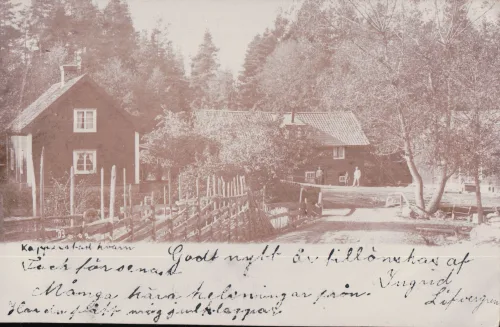 Kappenstad kvarn
Godt nytt år tillönskas af
Tack för senast
Ingrid
Många kära helsningar från
Har du fått många julklappar